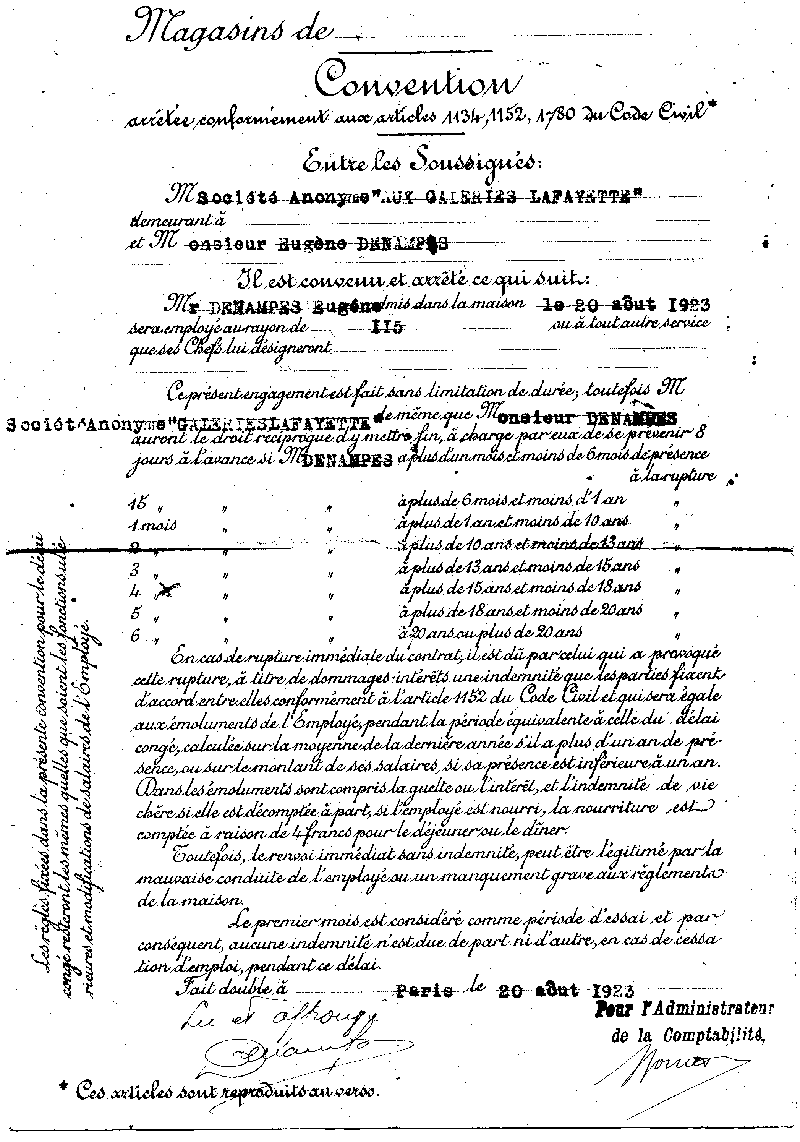 Magasins de
Convention
arrêtée conformément aux articles 1134, 1152, 1780 du Code Civil*
Entre les Soussignés:
M Société Anonyme "AUX GALERIES LAFAYETTE"
demeurant à
et M onsieur Eugène DENAMPES
Il est convenu et arrêté ce qui suit:
Mr DENAMPES Eugène admis dans la maison le 20 août 1923
sera employé au rayon de 115 ou à tout autre service
que ses Chefs lui désigneront
Ce présent engagement est fait sans limitation de durée; toutefois M
Société Anonyme "GALERIESLAFAYETTE" de même que Monsieur DENAMPES
auront le droit réciproque d'y mettre fin, à charge par eux de se prévenir 8
jours à l'avance si M DENAMPES a plus d'un mois et moins de 6 mois de présence
à la rupture
15 " " " à plus de 6 mois et moins d'1 an "
1 mois " " à plus de 1 an et moins de 10 ans "
2 " " " à plus de 10 ans et moins de 13 ans
3 " " " à plus de 13 ans et moins de 15 ans "
4 " " " à plus de 15 ans et moins de 18 ans "
5 " " " à plus de 18 ans et moins de 20 ans "
6 " " " à 20 ans ou plus de 20 ans "
En cas de rupture immédiate du contrat, il est dû par celui qui a provoqué
cette rupture, à titre de dommages intérêts une indemnité que les parties fixent
d'accord entre elles conformément à l'article 1152 du Code Civil et qui sera égale
aux émoluments de l'Employé, pendant la période équivalente à celle du délai
congé, calculée sur la moyenne de la dernière année s'il a plus d'un an de pré-
sence, ou sur le montant de ses salaires, si sa présence est inférieure à un an.
Dans les émoluments sont compris la guelte ou l'intérêt, et l'indemnité de vie
chère si elle est décomptée à part, si l'employé est nourri, la nourriture est
comptée à raison de 4 francs pour le déjeuner ou le dîner.
Toutefois, le renvoi immédiat sans indemnité, peut être légitimé par la
mauvaise conduite de l'employé ou un manquement grave aux règlements
de la maison.
Le premier mois est considéré comme période d'essai et par
conséquent, aucune indemnité n'est due de part ni d'autre, en cas de cessa
tion d'emploi, pendant ce délai.
Fait double, à Paris le 20 août 1923
Lu et approuvé
Pour l'Administrateur
de la Comptabilité,
* Ces articles sont reproduits au verso.
Les règles fixées dans la présente convention pour le délai
congé resteront les mêmes quelles que soient les fonctions ulté
rieures et modifications de salaires de l'Employé.